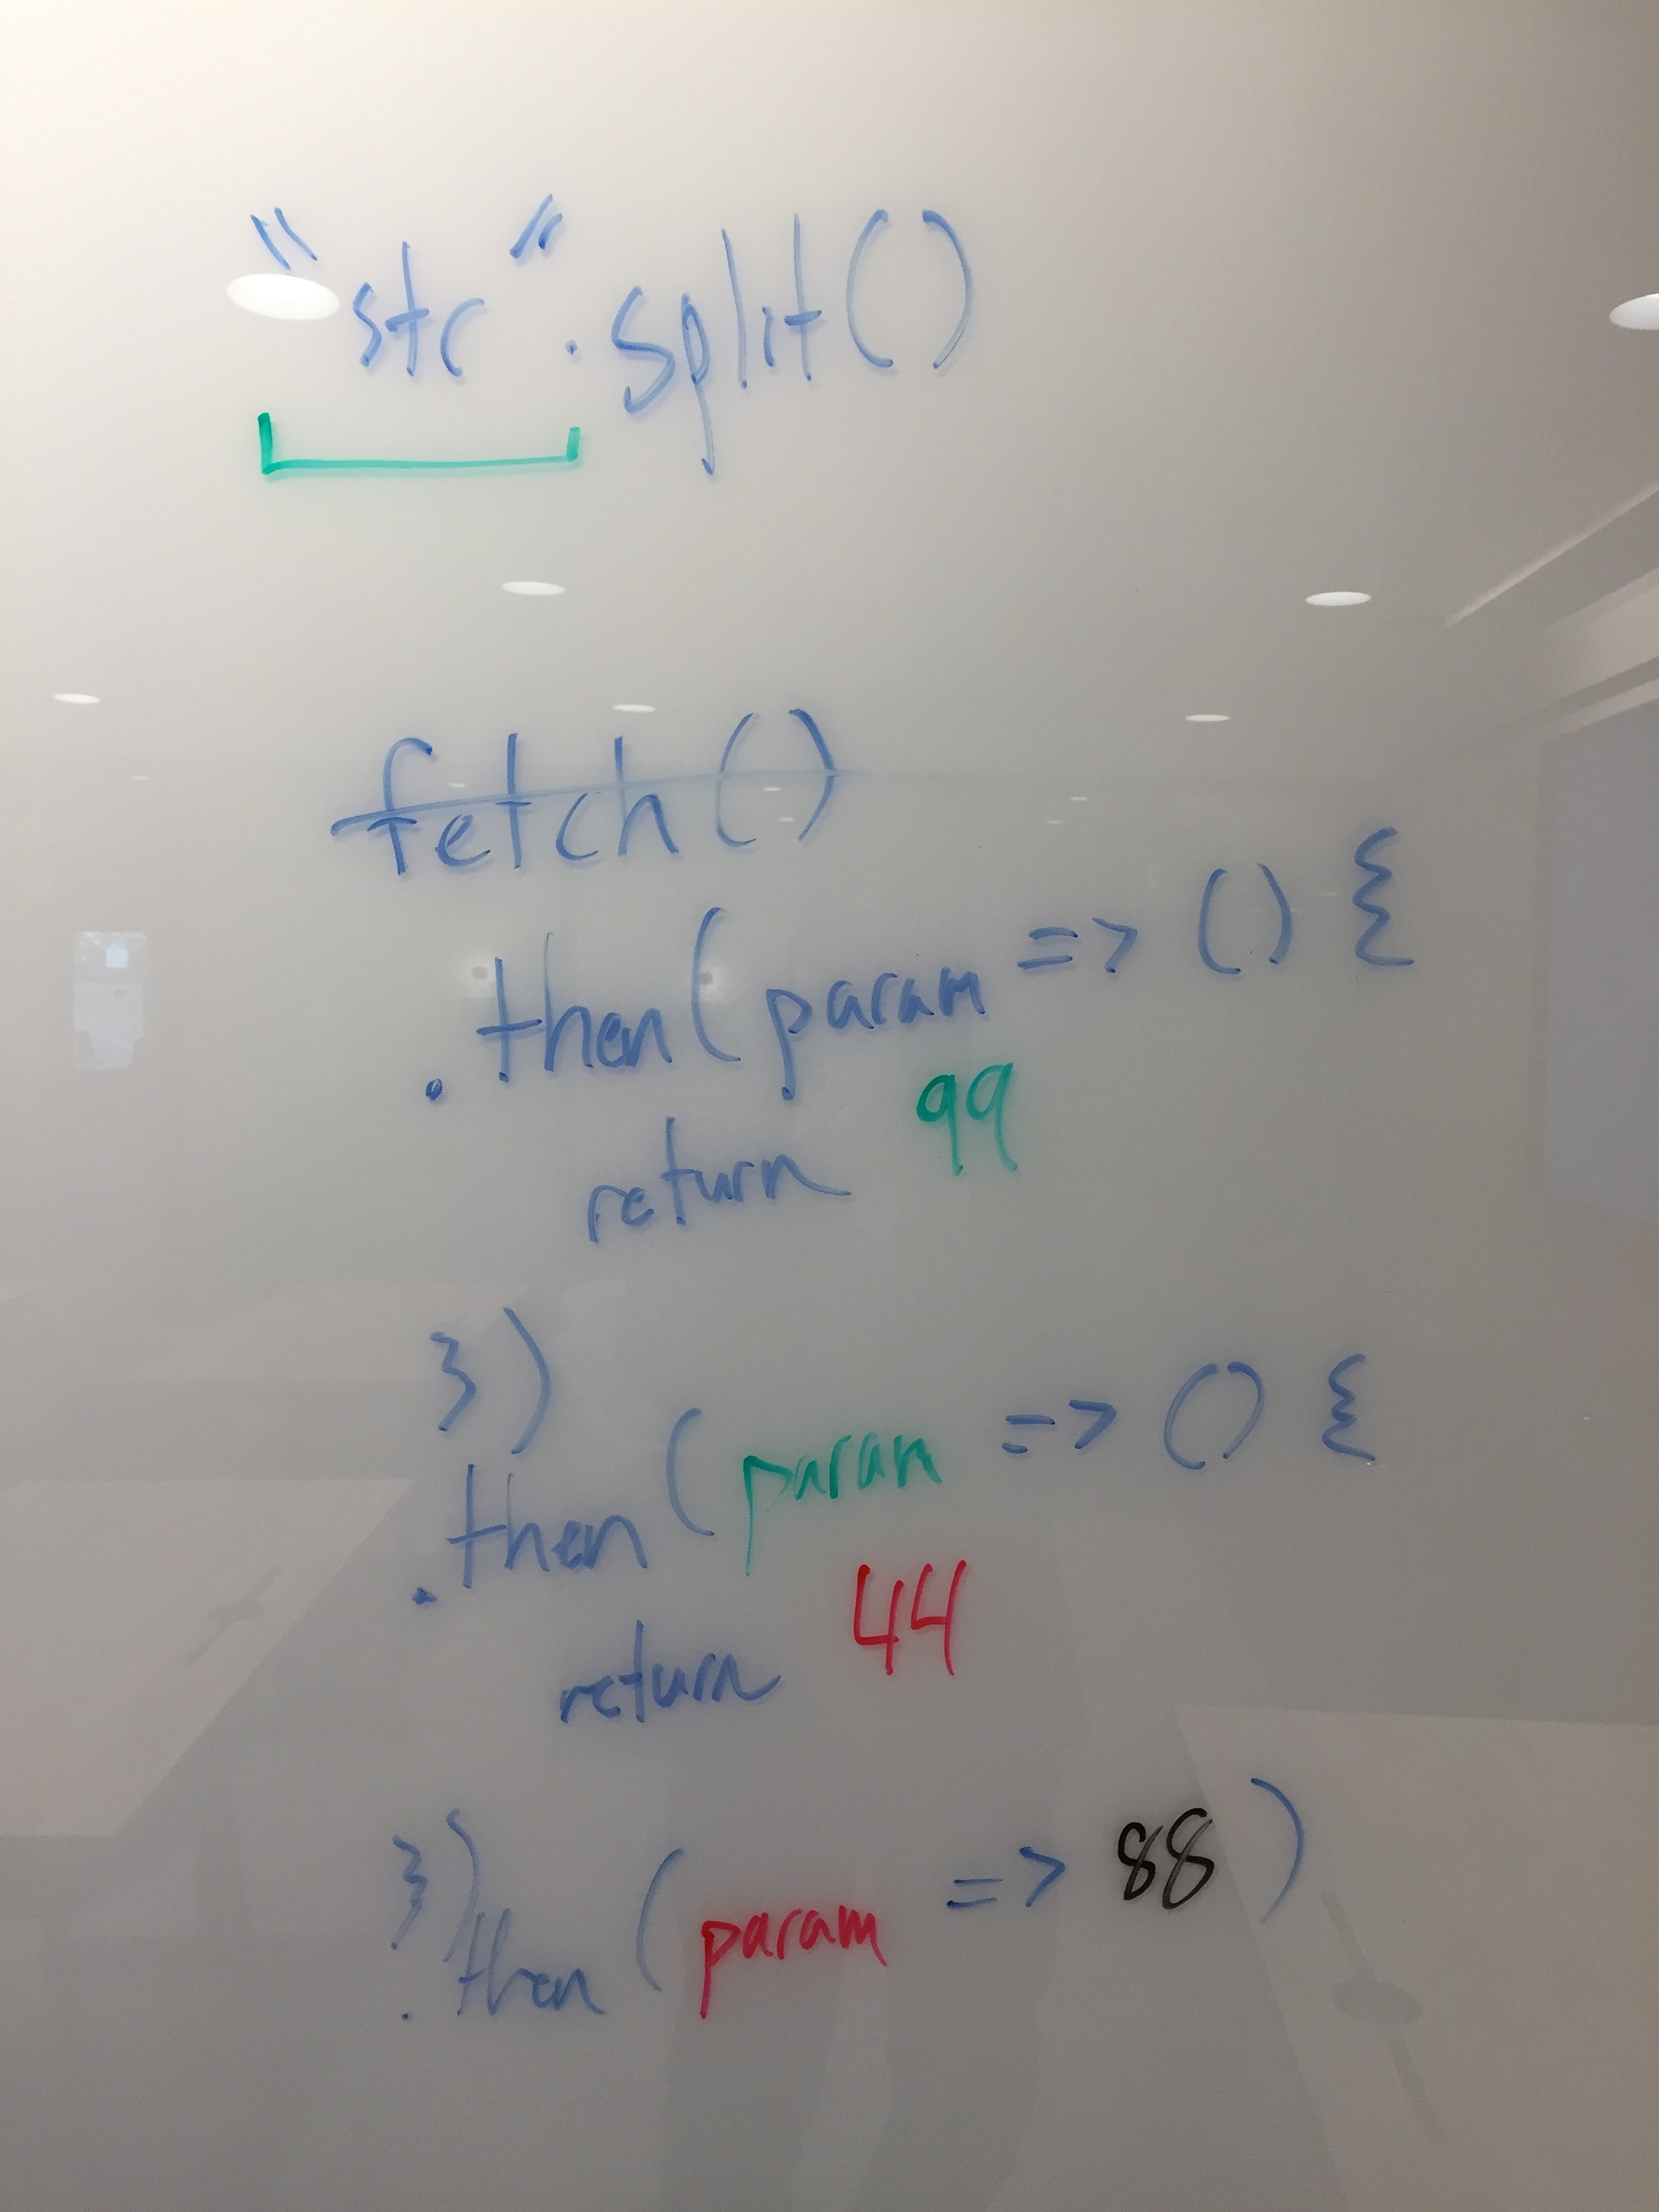 "str".split()
fetch()
.then(param => () {
return 99
})
.then(param => () {
return 44
})
.then(param => 88)